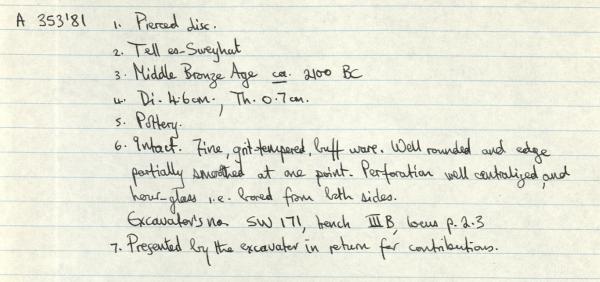 A 353'81 1. Pierced disc.
2. Tell es-Sweyhat
3. Middle Bronze Age ca. 2100 BC
4. Di. 4.6cm., Th. 0.7cm.
5. Pottery.
6. Intact. Fine, grit-tempered, buff ware. Well rounded and edge
partially smoothed at one point. Perforation well centralized, and
hour-glass i.e. bored from both sides.
Excavator's no. SW 171, trench III B, locus p. 2.3
7. Presented by the excavator in return for contributions.